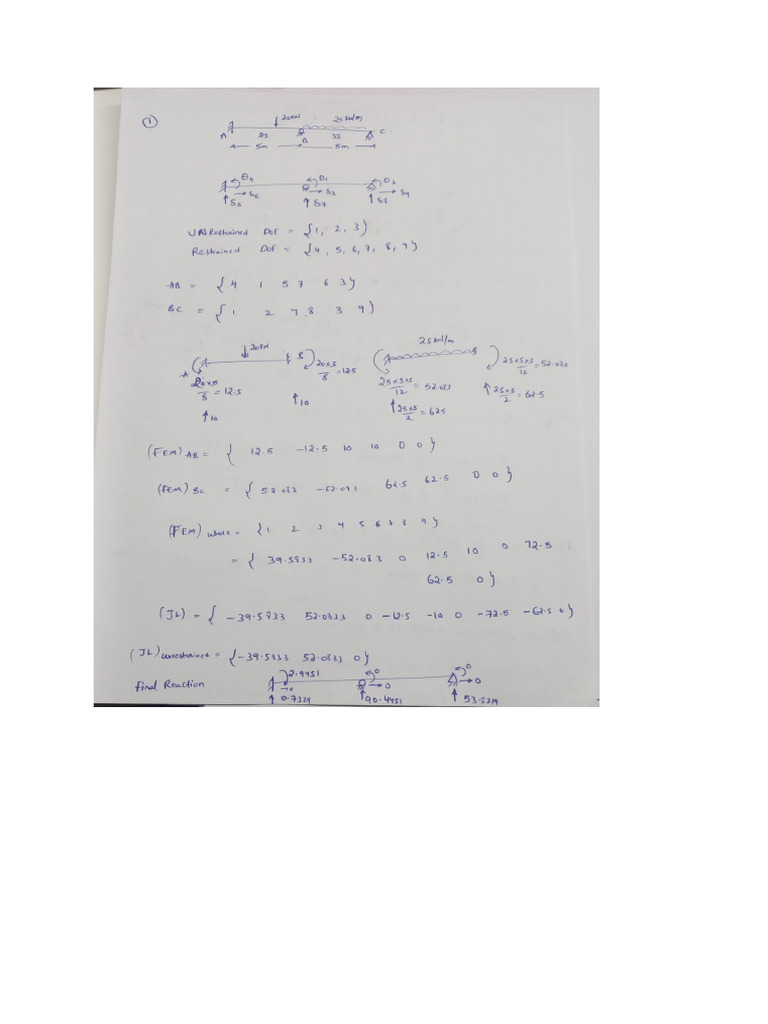 ①
20kN 25kN/m
A 2I B 3I C
5m 5m
θ4 θ1 θ2
δ5 δ6 δ7 δ3 δ8 δ9
UNRestrained Dof = {1, 2, 3}
Restrained Dof = {4, 5, 6, 7, 8, 9}
AB = {4 1 5 7 6 3}
BC = {1 2 7 8 3 9}
20kN B 25kN/m
A 20×5/8 = 12.5 20×5/8 = 12.5 25×5×5/12 = 52.083 25×5×5/12 = 52.083
↑10 ↑10 ↑25×5/2 = 62.5 ↑25×5/2 = 62.5
(FEM) AB = { 12.5 -12.5 10 10 0 0}
(FEM) BC = { 52.083 -52.083 62.5 62.5 0 0}
(FEM) whole = {1 2 3 4 5 6 7 8 9}
= { 39.5833 -52.083 0 12.5 10 0 72.5
62.5 0}
(JL) = { -39.5833 52.0833 0 -12.5 -10 0 -72.5 -62.5 0}
(JL) unrestrained = {-39.5833 52.0833 0}
2.9451 0 0
Final Reaction →0 →0 →0
↑ 0.7329 ↑90.4451 ↑ 53.8219